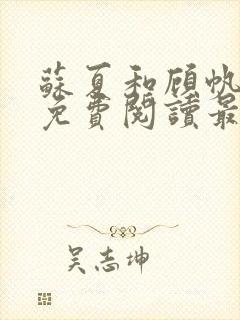 蘇夏和顧帆
免費閱讀最
吴志坤